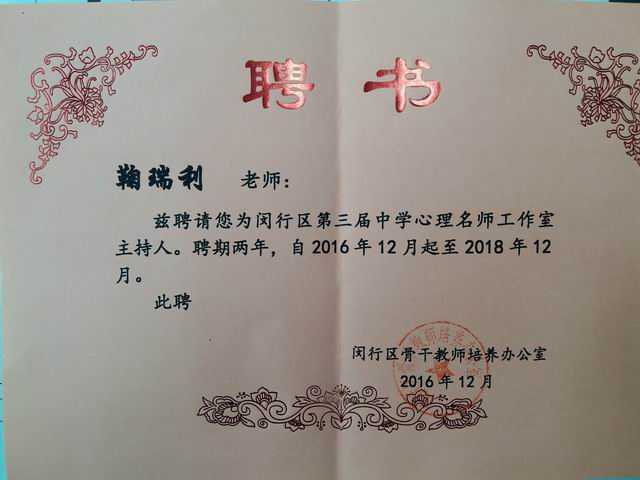 聘书
鞠瑞利 老师：
兹聘请您为闵行区第三届中学心理名师工作室
主持人。聘期两年，自2016年12月起至2018年12
月。
此聘
闵行区骨干教师培养办公室
2016年12月